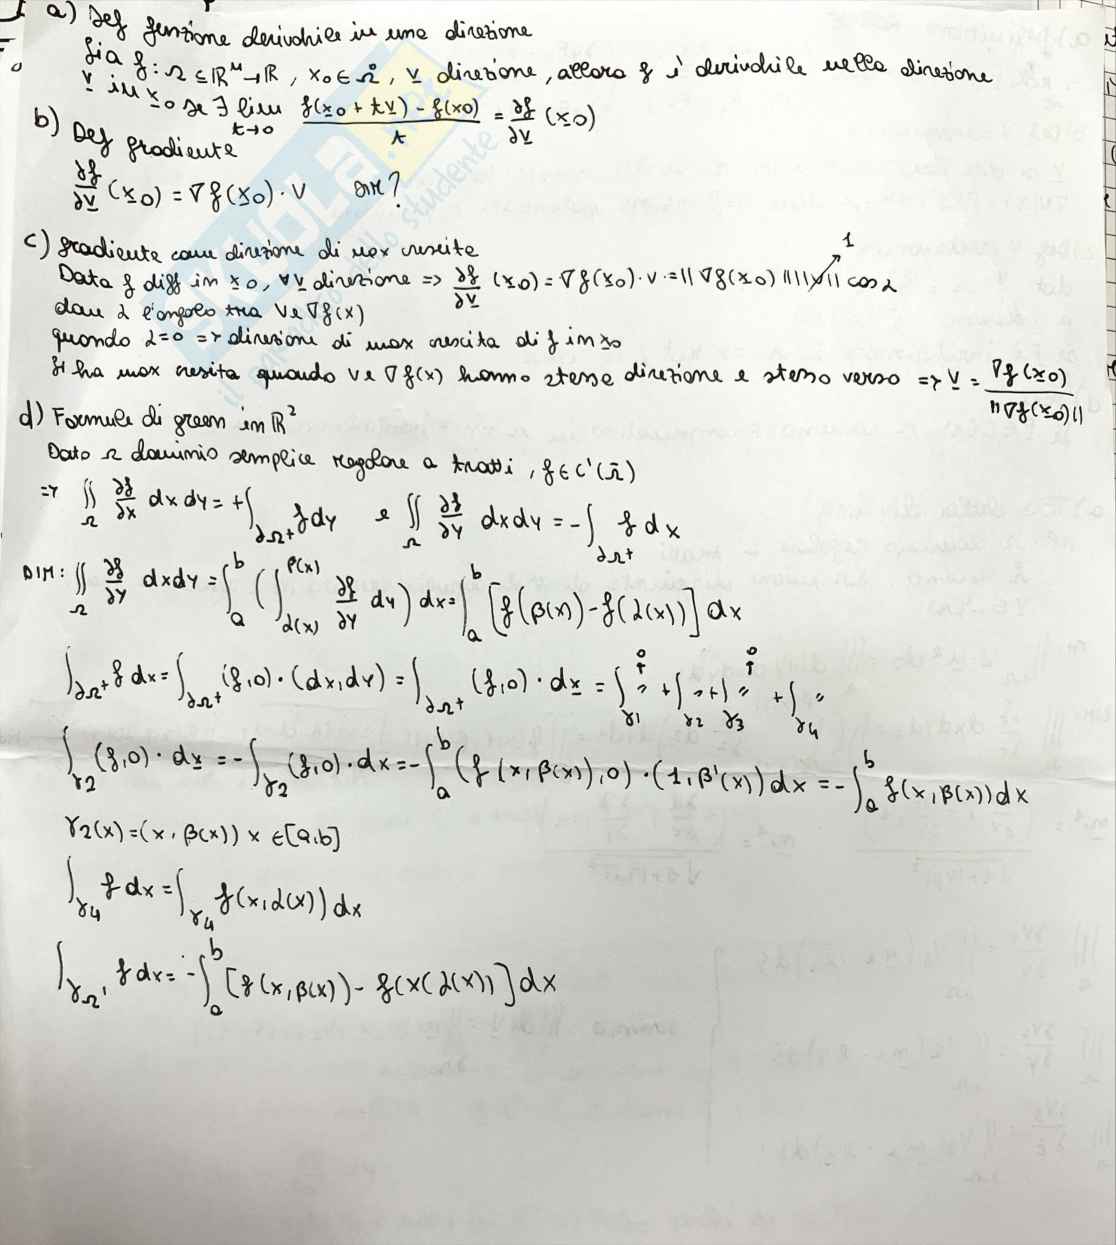 a) Def funzione derivabile in una direzione
Sia f: Ω ⊆ ℝᴹ → ℝ, x₀ ∈ Ω̊, v direzione, allora f è derivabile nella direzione
v in x₀ se ∃ lim t→0 (f(x₀ + tv) - f(x₀))/t = ∂f/∂v (x₀)
b) Def gradiente
∂f/∂v (x₀) = ∇f(x₀) · v DIM?
c) gradiente come direzione di max crescita
Data f diff in x₀, ∀v direzione => ∂f/∂v (x₀) = ∇f(x₀) · v = ||∇f(x₀)|| ||v|| cos α 1
dove α l'angolo tra v e ∇f(x)
quando α=0 => direzione di max crescita di f in x₀
Si ha max cresita quando v e ∇f(x) hanno stessa direzione e stesso verso => v = ∇f(x₀)/||∇f(x₀)||
d) Formule di green in ℝ²
Dato Ω dominio semplice regolare a tratti, f ∈ C'(Ω̄)
=> ∬_Ω ∂f/∂x dx dy = +∫_∂Ω⁺ f dy e ∬_Ω ∂f/∂y dxdy = -∫_∂Ω⁺ f dx
DIM: ∬_Ω ∂f/∂y dxdy = ∫_a^b (∫_α(x)^β(x) ∂f/∂y dy) dx = ∫_a^b [f(β(x)) - f(α(x))] dx
∫_∂Ω⁺ f dx = ∫_∂Ω⁺ (f,0) · (dx,dy) = ∫_∂Ω⁺ (f,0) · dx = ∫_γ1 " ↑ 0 + ∫_γ2 " + ∫_γ3 " ↑ 0 + ∫_γ4 "
∫_γ2 (f,0) · dx = -∫_γ2 (f,0) · dx = -∫_a^b (f(x,β(x)),0) · (1,β'(x)) dx = -∫_a^b f(x,β(x)) dx
γ2(x) = (x, β(x)) x ∈ [a,b]
∫_γ4 f dx = ∫_γ4 f(x,α(x)) dx
∫_γΩ' f dx = -∫_a^b [f(x,β(x)) - f(x(α(x))] dx